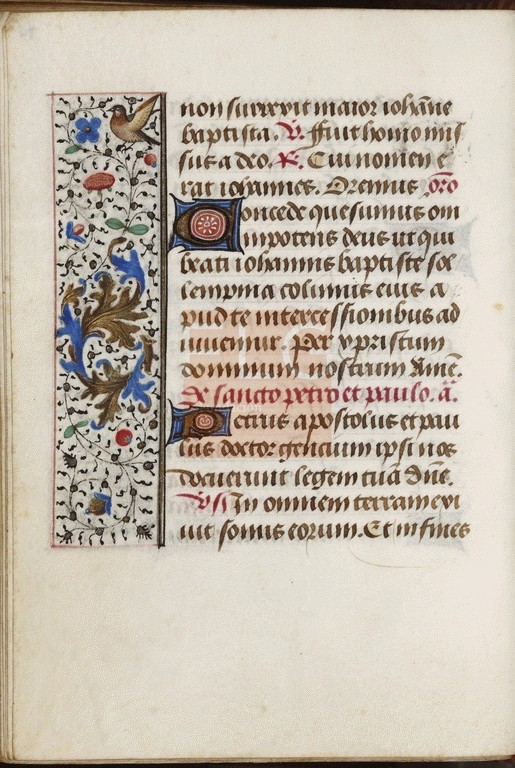 non surrexit maior iohãne
baptista. V. ffuit homo mis
sus a deo. R. Cui nomen e
rat iohannes. Oremus oro
Concede quesumus om
nipotens deus ut qui
beati iohannis baptiste sol
lempnia colimus eius a
pud te intercessionibus ad
iuuemur. Per xpristum
dominum nostrum Amē.
De sancto petro et paulo. ā.
Petrus apostolus et pau
lus doctor gencium ipsi nos
docuerunt legem tuā Dñe.
Vs In omnem terram exi
uit sonus eorum. Et in fines